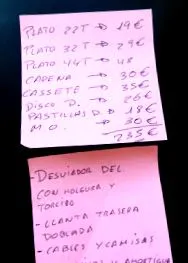 PLATO 22T → 19€
PLATO 32T → 29€
PLATO 44T → 48
CADENA → 30€
CASSETE → 35€
DISCO D. → 26€
PASTILLAS D → 18€
M.O. → 30€
235€
- DESVIADOR DEL
CON HOLGURA Y
TORCIDO
- LLANTA TRASERA
DOBLADA
- CABLES Y CAMISAS
Y AMORTIGU